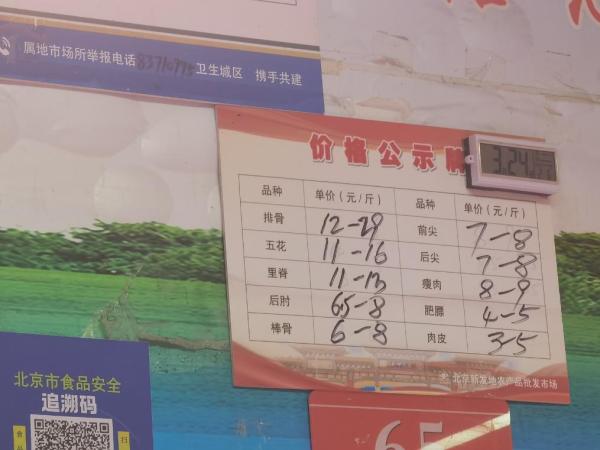 属地市场所举报电话 83710775 卫生城区 携手共建
价格公示牌
3.24
品种 单价（元/斤） 品种 单价（元/斤）
排骨 12-29 前尖 7-8
五花 11-16 后尖 7-8
里脊 11-13 瘦肉 8-9
后肘 65-8 肥膘 4-5
棒骨 6-8 肉皮 3-5
北京新发地农产品批发市场
北京市食品安全
追溯码
65